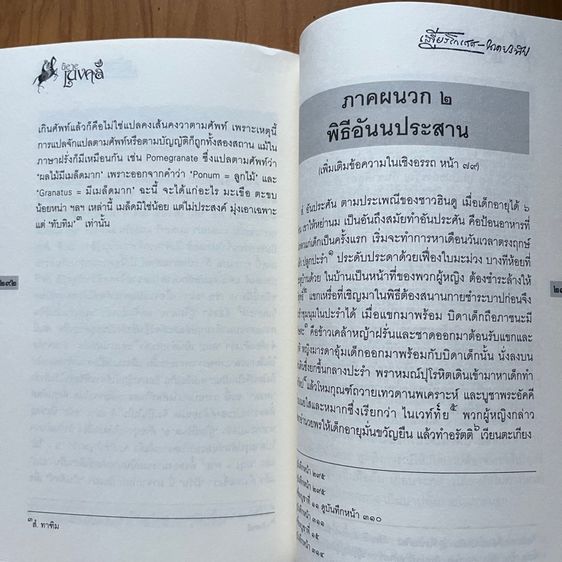 เกินศัพท์แล้วก็คือไม่ใช่แปลคงเส้นคงวาตามศัพท์ เพราะเหตุนี้
การแปลจักแปลตามศัพท์หรือตามบัญญัติก็ถูกทั้งสองสถาน แม้ใน
ภาษาฝรั่งก็มีเหมือนกัน เช่น Pomegranate ซึ่งแปลตามศัพท์ว่า
'ผลไม้มีเมล็ดมาก' เพราะออกจากคำว่า 'Ponum = ลูกไม้' และ
'Granatus = มีเมล็ดมาก' ฉะนี้ จะได้แก่อะไร มะเขือ ตะขบ
น้อยหน่า ฯลฯ เหล่านี้ เมล็ดมิใช่น้อย แต่ไม่ประสงค์ มุ่งเอาเฉพาะ
แต่ 'ทับทิม'๓ เท่านั้น
๒๙๒
๓สํ. ทาฑิม
ภาคผนวก ๒
พิธีอันนประสาน
(เพิ่มเติมข้อความในเชิงอรรถ หน้า ๗๙)
อันประศัน ตามประเพณีของชาวฮินดู เมื่อเด็กอายุได้ ๖
เราให้หย่านม เป็นอันถึงสมัยทำอันประศัน คือป้อนอาหารที่
แก่เด็กเป็นครั้งแรก เริ่มจะทำการหาเดือนวันเวลาตรงฤกษ์
ปลูกปะรำ ประดับประดาด้วยเฟื่องใบมะม่วง บางทีห้อยที่
บ้านด้วย ในบ้านเป็นหน้าที่ของพวกผู้หญิง ต้องชำระล้างให้
แขกเหรื่อที่เชิญมาในพิธีต้องสนานกายชำระบาปก่อนจึง
ชุมนุมในปะรำได้ เมื่อแขกมาพร้อม บิดาเด็กถือภาชนะมี
คือข้าวเคล้าหญ้าฝรั่นและชาดออกมาต้อนรับแขกและ
หญิงมารดาอุ้มเด็กออกมาพร้อมกับบิดาเด็กนั้น นั่งลงบน
ซึ่งยกขึ้นกลางปะรำ พราหมณ์ปุโรหิตเดินเข้ามาหาเด็กทำ
แล้วโหมกูณฑ์ถวายเทวดานพเคราะห์ และบูชาพระอัคคี
และหมากซึ่งเรียกว่า ไนเวท์ทัย๕ พวกผู้หญิงกล่าว
อวยพรให้เด็กอายุมั่นขวัญยืน แล้วทำอรัตติ๖ เวียนตะเกียง
หน้า ๒๙๕
หน้า ๒๙๕
๑๑ ดูบันทึกหน้า ๓๑๐
หน้า ๓๑๑
๑๕
หน้า ๓๑๔